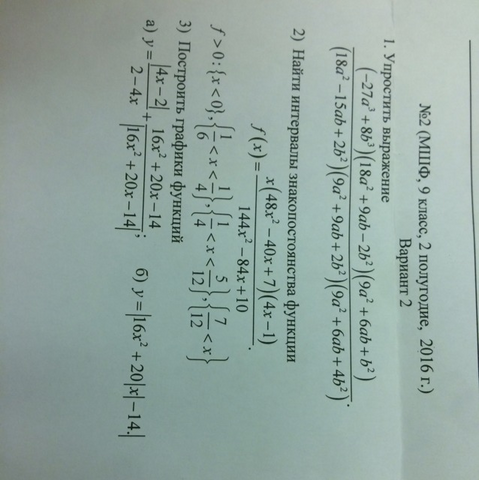 №2 (МШФ, 9 класс, 2 полугодие, 2016 г.)
Вариант 2
1. Упростить выражение
(−27a³ + 8b³)(18a² + 9ab − 2b²)(9a² + 6ab + b²)
(18a² − 15ab + 2b²)(9a² + 9ab + 2b²)(9a² + 6ab + 4b²) .
2) Найти интервалы знакопостоянства функции
f(x) = x(48x² − 40x + 7)(4x − 1) / (144x² − 84x + 10) .
f > 0 : {x < 0}, {1/6 < x < 1/4}, {1/4 < x < 5/12}, {7/12 < x}
3) Построить графики функций
а) y = |4x − 2| / (2 − 4x) + (16x² + 20x − 14) / |16x² + 20x − 14| ; б) y = |16x² + 20|x| − 14.|